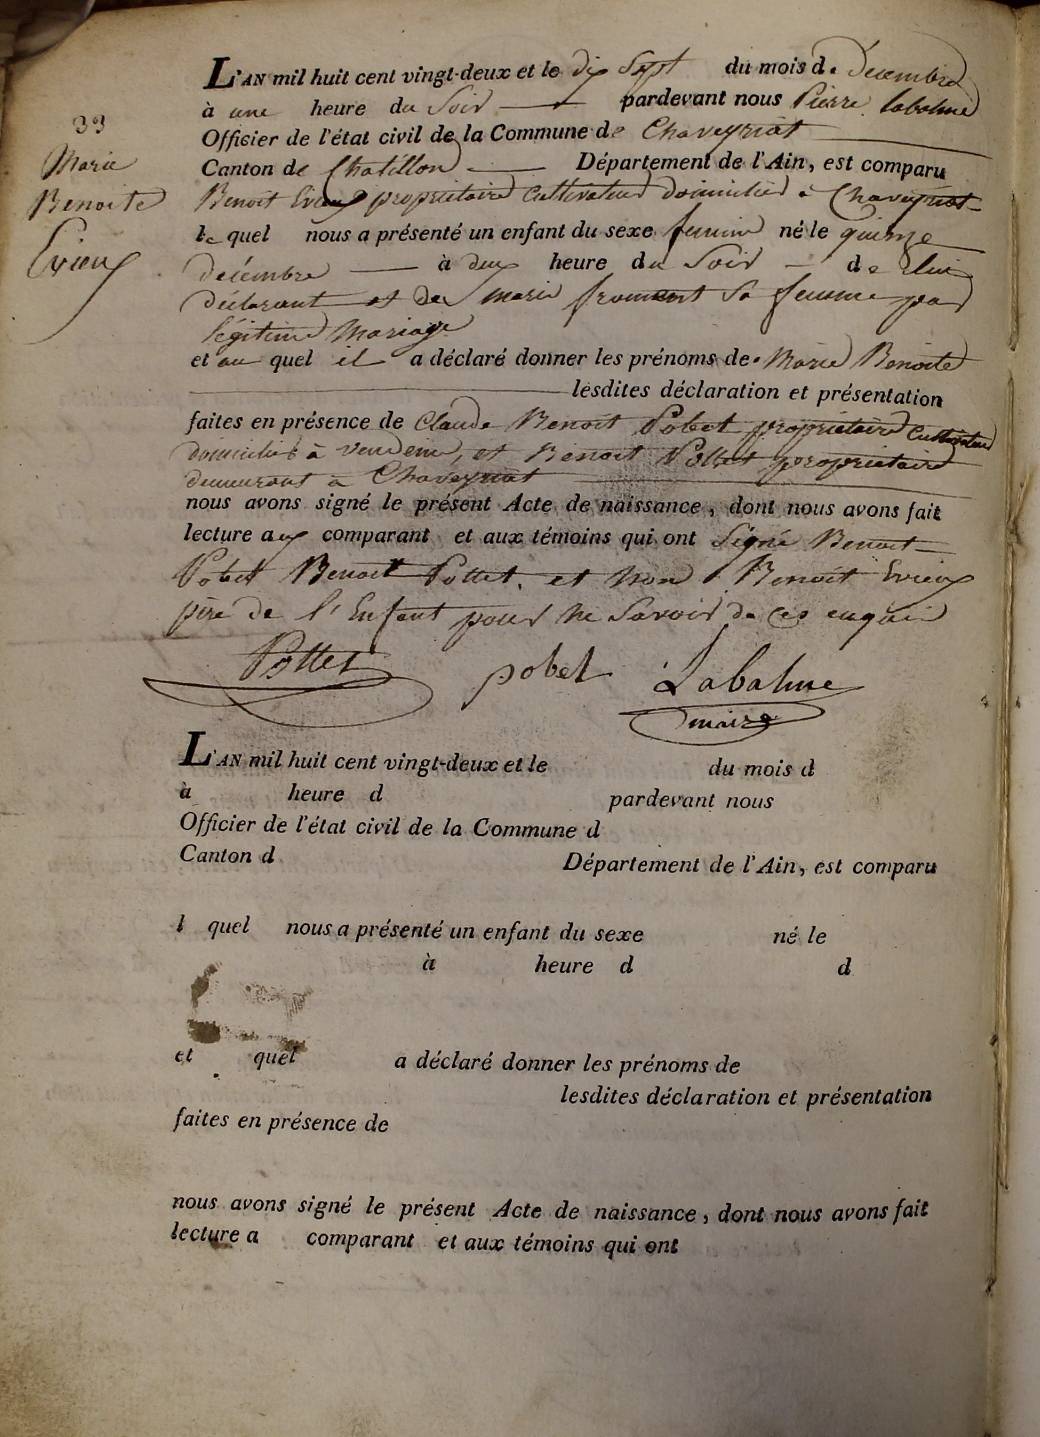 L'AN mil huit cent vingt-deux et le dix Sept du mois de Décembre
à une heure du Soir pardevant nous Pierre Labalme
Officier de l'état civil de la Commune de Chaveyriat
Canton de Chatillon Département de l'Ain, est comparu
Benoit Evieux propriétaire Cultivateur domicilié à Chaveyriat
le quel nous a présenté un enfant du sexe feminin né le quinze
décembre à deux heure du Soir de lui
déclarant et de Marie froment Sa femme par
légitime Mariage
et au quel il a déclaré donner les prénoms de Marie Benoite
lesdites déclaration et présentation
faites en présence de Claude Benoit Pobet propriétaire Cultivateur
domicilié à Vandeins, et Benoit Pottet propriétaire
demeurant à Chaveyriat
nous avons signé le présent Acte de naissance, dont nous avons fait
lecture aux comparant et aux témoins qui ont Signé Benoit
Pobet Benoit Pottet, et non Benoit Evieux
père de l'Enfant pour ne Savoir de ce enquis
Pottet pobet Labalme
maire
33
Marie
Benoite
Evieux
L'AN mil huit cent vingt-deux et le du mois d
à heure d pardevant nous
Officier de l'état civil de la Commune d
Canton d Département de l'Ain, est comparu
l quel nous a présenté un enfant du sexe né le
à heure d d
et quel a déclaré donner les prénoms de
lesdites déclaration et présentation
faites en présence de
nous avons signé le présent Acte de naissance, dont nous avons fait
lecture a comparant et aux témoins qui ont